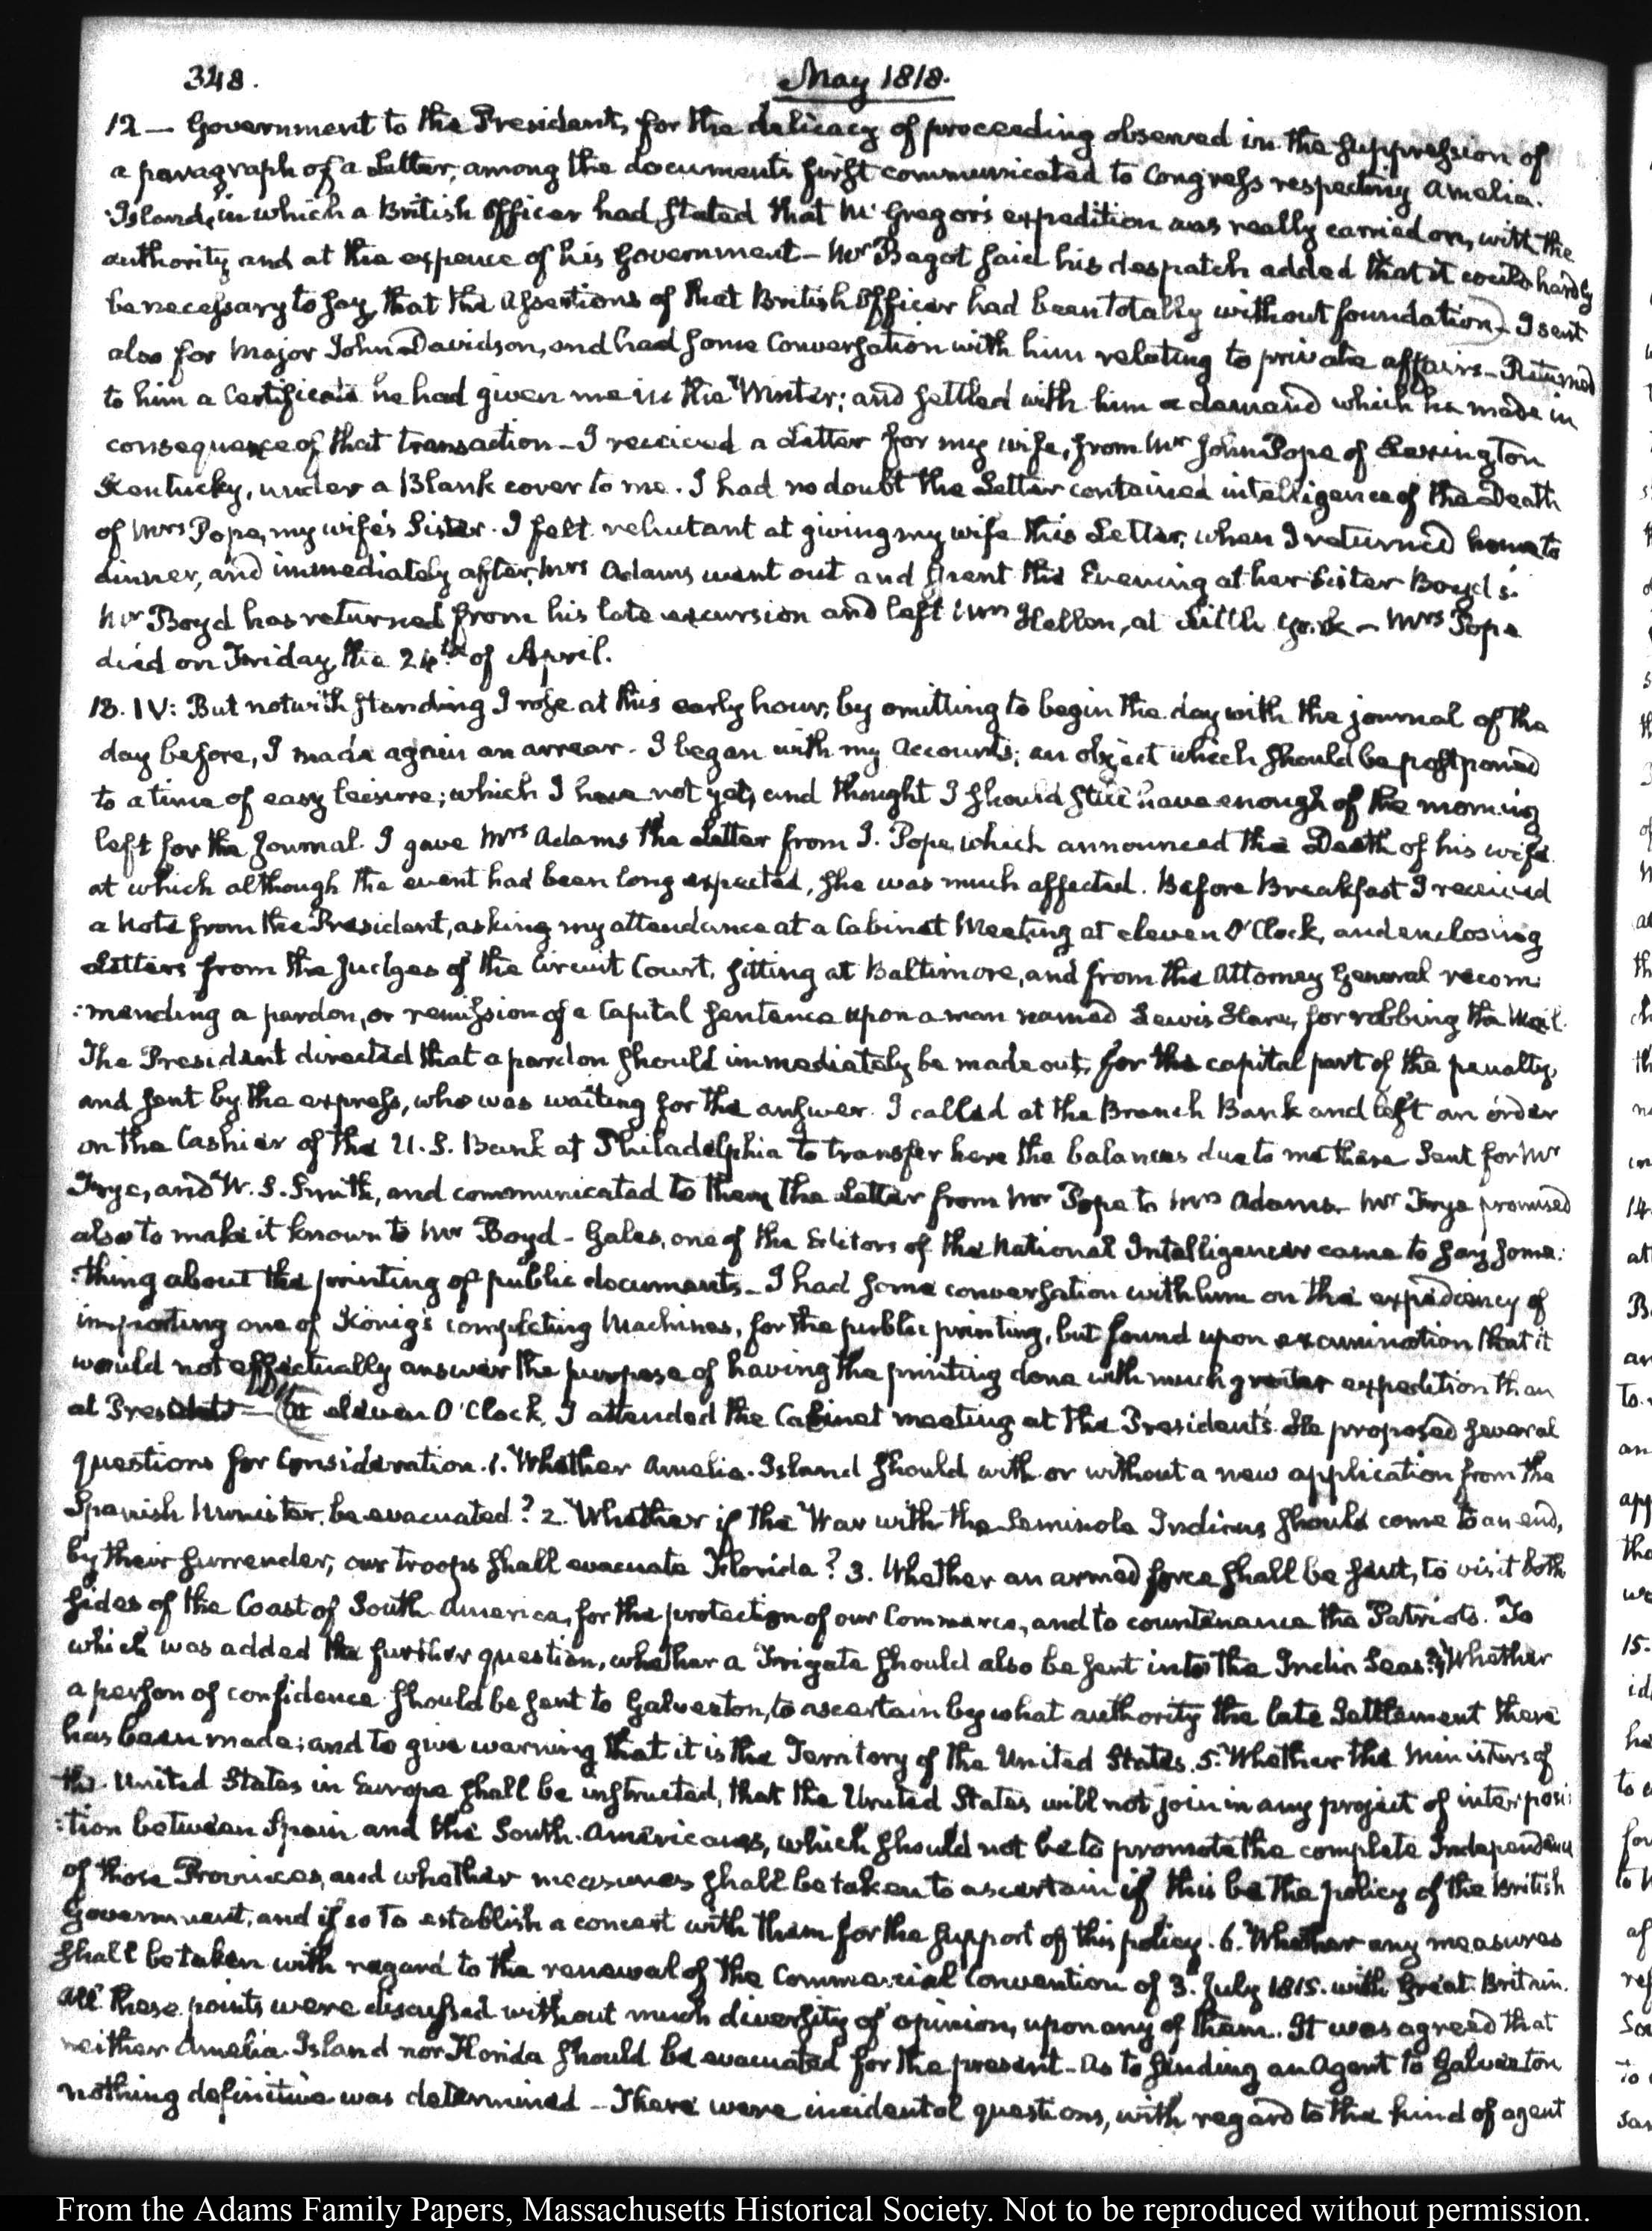 348.
May 1818.
12 — Government to the President, for the delicacy of proceeding observed in the suppression of
a paragraph of a Letter, among the documents first communicated to Congress respecting Amelia-
Island, in which a British Officer had stated that McGregor's expedition was really carried on, with the
authority and at the expence of his Government — Mr Bagot said his despatch added that it could hardly
be necessary to say, that the Assertions of that British Officer had been totally without foundation — I sent
also for Major John Davidson, and had some Conversation with him relating to private affairs — Returned
to him a Certificate he had given me in the Winter; and settled with him a demand which he made in
consequence of that transaction — I received a Letter for my wife, from Mr John Pope of Lexington
Kentucky, under a Blank cover to me. I had no doubt the Letter contained intelligence of the Death
of Mrs Pope, my wife's Sister. I felt reluctant at giving my wife this Letter, when I returned home to
dinner, and immediately after, Mrs Adams went out and spent the Evening at her Sister Boyd's.
Mr Boyd has returned from his late excursion and left Mrs Hellen, at Little York — Mrs Pope
died on Friday, the 24th of April.
13. IV: But notwithstanding I rose at this early hour, by omitting to begin the day with the journal of the
day before, I made again an arrear. I began with my Accounts; an object which should be postponed
to a time of easy leisure; which I have not yet, and thought I should still have enough of the morning
left for the Journal. I gave Mrs Adams the Letter from J. Pope, which announced the Death of his wife
at which although the event had been long expected, she was much affected. Before Breakfast I received
a Note from the President, asking my attendance at a Cabinet Meeting at eleven O'Clock, and enclosing
Letters from the Judges of the Circuit Court, sitting at Baltimore, and from the Attorney General recom-
:mending a pardon, or remission of a Capital sentence upon a man named Lewis Hare, for robbing the Mail.
The President directed that a pardon should immediately be made out, for the capital part of the penalty,
and sent by the express, who was waiting for the answer. I called at the Branch Bank and left an order
on the Cashier of the U.S. Bank at Philadelphia to transfer here the balances due to me there. Sent for Mr
Frye, and W. S. Smith, and communicated to them the Letter from Mr Pope to Mrs Adams. Mr Frye promised
also to make it known to Mr Boyd — Gales, one of the Editors of the National Intelligencer came to say some:
:thing about the printing of public documents — I had some conversation with him on the expediency of
importing one of König's completing Machines, for the public printing, but found upon examination that it
would not effectually answer the purpose of having the printing done with much greater expedition than
at Present — At eleven O'Clock, I attended the Cabinet meeting at the President's. He proposed several
questions for Consideration. 1. Whether Amelia-Island should with or without a new application from the
Spanish Minister, be evacuated? 2. Whether if the War with the Seminole Indians should come to an end,
by their surrender, our troops shall evacuate Florida? 3. Whether an armed force shall be sent, to visit both
sides of the Coast of South-America, for the protection of our Commerce, and to countenance the Patriots. To
which was added the further question, whether a Frigate should also be sent into the India Seas? 4. Whether
a person of confidence should be sent to Galveston, to ascertain by what authority the late Settlement there
has been made; and to give warning that it is the Territory of the United States. 5. Whether the Ministers of
the United States in Europe shall be instructed, that the United States will not join in any project of interposi:
:tion between Spain and the South-Americans, which should not be to promote the complete Independence
of those Provinces, and whether measures shall be taken to ascertain if this be the policy of the British
Government, and if so to establish a concert with them for the support of this policy. 6. Whether any measures
shall be taken with regard to the renewal of the Commercial Convention of 3. July 1815. with Great-Britain.
All these points were discussed without much diversity of opinion, upon any of them. It was agreed that
neither Amelia-Island nor Florida should be evacuated for the present — As to sending an Agent to Galveston
nothing definitive was determined — There were incidental questions, with regard to the kind of agent
From the Adams Family Papers, Massachusetts Historical Society. Not to be reproduced without permission.